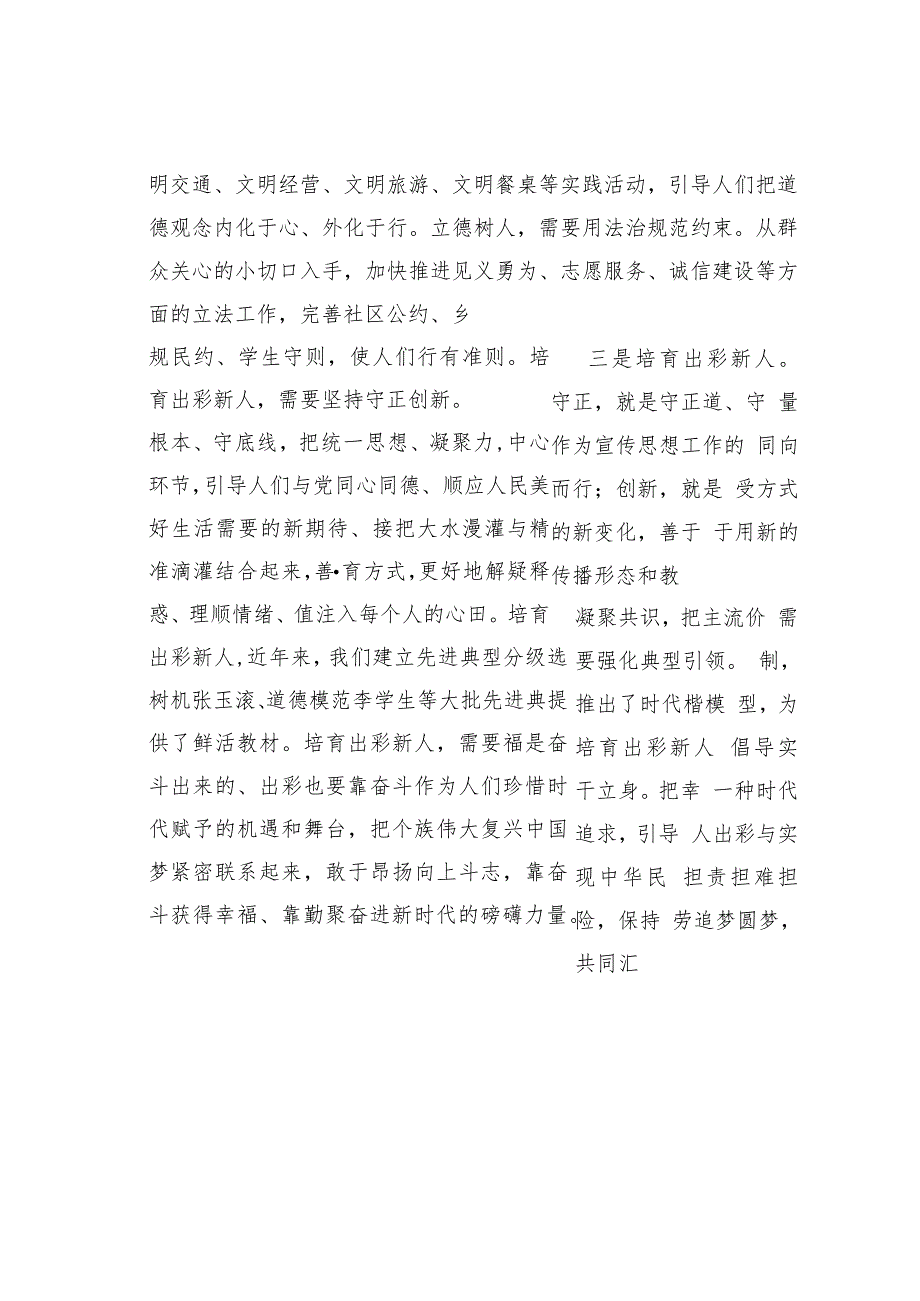 明交通、文明经营、文明旅游、文明餐桌等实践活动，引导人们把道
德观念内化于心、外化于行。立德树人，需要用法治规范约束。从群
众关心的小切口入手，加快推进见义勇为、志愿服务、诚信建设等方
面的立法工作，完善社区公约、乡
规民约、学生守则，使人们行有准则。培
育出彩新人，需要坚持守正创新。
根本、守底线，把统一思想、凝聚力,中心
环节,引导人们与党同心同德、顺应人民美
好生活需要的新期待、接把大水漫灌与精
准滴灌结合起来,善•育方式,更好地解疑释
惑、理顺情绪、值注入每个人的心田。培育
出彩新人,近年来，我们建立先进典型分级选
树机张玉滚、道德模范李学生等大批先进典提
供了鲜活教材。培育出彩新人，需要福是奋
斗出来的、出彩也要靠奋斗作为人们珍惜时
代赋予的机遇和舞台，把个族伟大复兴中国
梦紧密联系起来，敢于昂扬向上斗志，靠奋
斗获得幸福、靠勤聚奋进新时代的磅礴力量。
三是培育出彩新人。
守正，就是守正道、守 量
作为宣传思想工作的 同向
而行；创新，就是 受方式
的新变化，善于 于用新的
传播形态和教
凝聚共识，把主流价 需
要强化典型引领。 制，
推出了时代楷模 型，为
培育出彩新人 倡导实
干立身。把幸 一种时代
追求，引导 人出彩与实
现中华民 担责担难担
险，保持 劳追梦圆梦，
共同汇